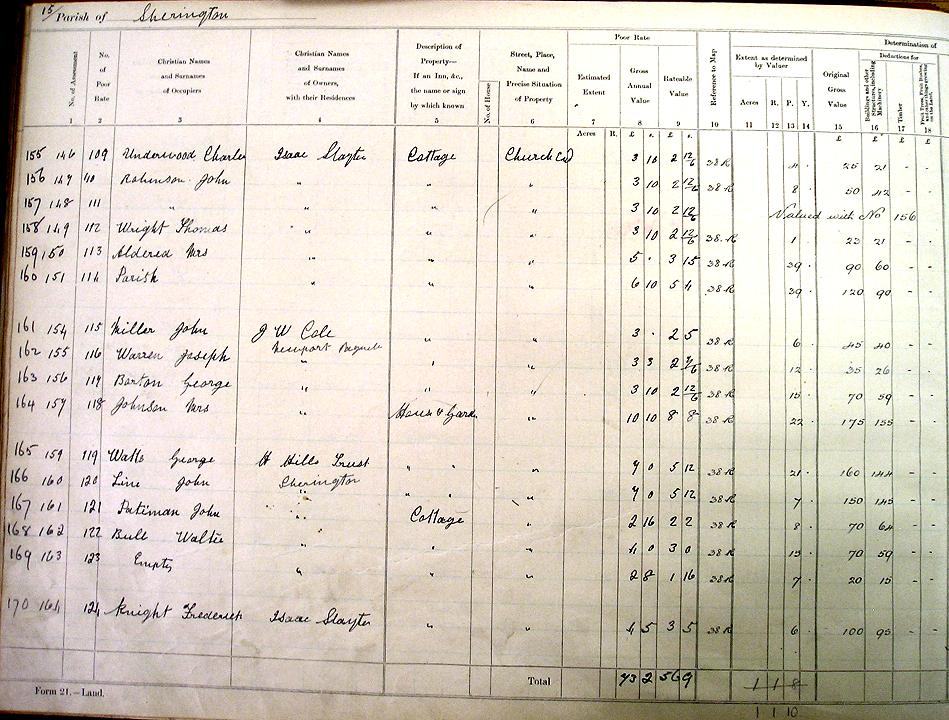 15 Parish of Sherington
Poor Rate
Determination of
No. of Assessment
No. of Poor Rate
Christian Names and Surnames of Occupiers
Christian Names and Surnames of Owners, with their Residences
Description of Property— If an Inn, &c., the name or sign by which known
No. of House
Street, Place, Name and Precise Situation of Property
Estimated Extent
Gross Annual Value
Rateable Value
Reference to Map
Extent as determined by Valuer
Acres R. P. Y.
Original Gross Value
Deductions for
Buildings and other Structures, including Machinery
Timber
Fruit Trees, Fruit Bushes, and other things growing on the Land.
1 2 3 4 5 6 7 8 9 10 11 12 13 14 15 16 17 18
Acres R. £ s. £ s. £ £ £
155 146 109 Underwood Charles Isaac Slayter Cottage Church End 3 10 2 12/6 38 R 4 . 25 21 - -
156 147 110 Robinson John " " " 3 10 2 12/6 38 R 8 . 50 42 - -
157 148 111 " " " " 3 10 2 12/6 Valued with No 156
158 149 112 Wright Thomas " " " 3 10 2 12/6 38.R 1 . 23 21 - -
159 150 113 Aldered Mrs " " " 5 . 3 15 38 R 39 . 90 60 - -
160 151 114 Parish " " " 6 10 5 4 38 R 39 . 120 90 - -
161 154 115 Miller John J W Cole " " 3 . 2 5 38 R 6 . 45 40 - -
Newport Pagnell
162 155 116 Warren Joseph " " " 3 3 2 38 R 12 . 35 26 - -
163 156 117 Barton George " " " 3 10 2 12/6 38 R 15 . 70 59 - -
164 157 118 Johnson Mrs " House & Garden " 10 10 8 8 38 R 22 . 175 155 - -
165 159 119 Watts George H Hills Trust " " " 7 0 5 12 38 R 21 . 160 144 - -
166 160 120 Line John Sherington " " " 7 0 5 12 38 R 7 . 150 145 - -
167 161 121 Pateman John " Cottage " 2 16 2 2 38 R 8 . 70 64 - -
168 162 122 Bull Walter " " " 4 0 3 0 38 R 15 . 70 59 - -
169 163 123 Empty " " " 2 8 1 16 38 R 7 . 20 15 - -
170 164 124 Knight Frederick Isaac Slayter " " 4 5 3 5 38 R 6 . 100 95 - -
Total 73 2 56 9 1 1 8
Form 21.—Land.
1 1 10